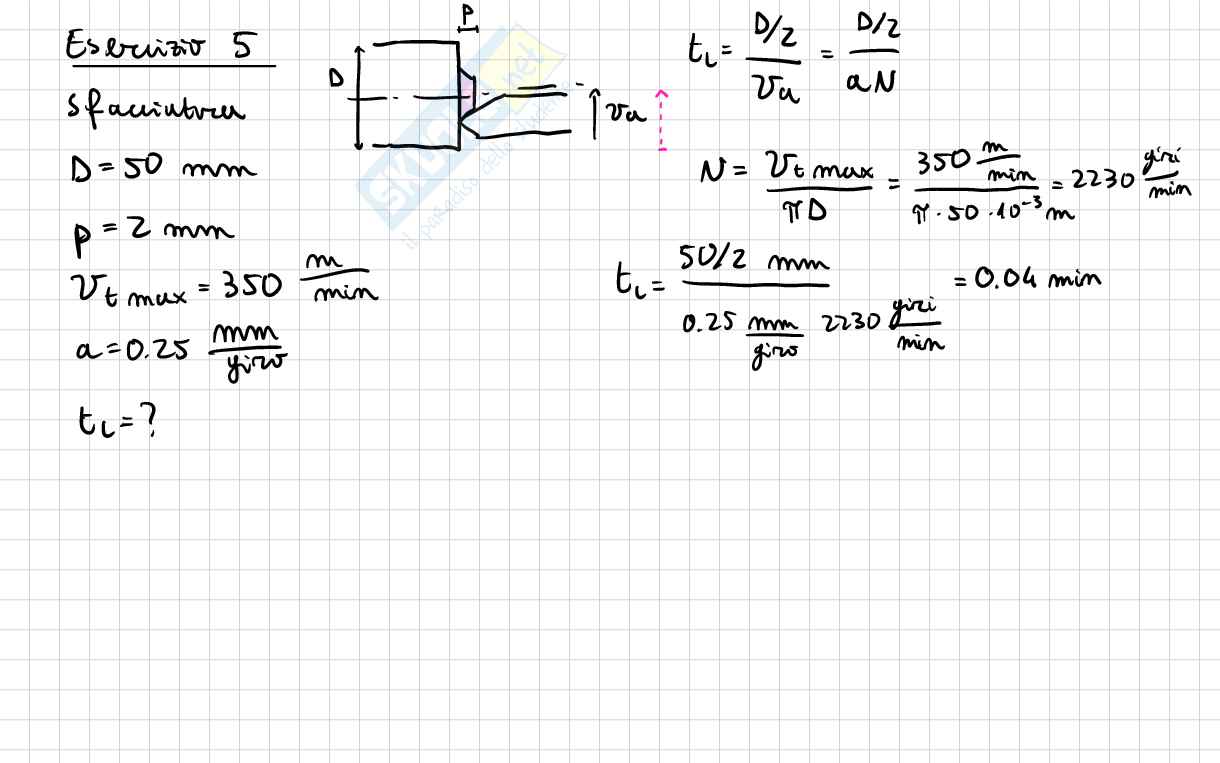 Esercizio 5
sfacciatura
D = 50 mm
p = 2 mm
v_t max = 350 m/min
a = 0.25 mm/giro
t_L = ?
P
D
va
SKUOLA.net
il paradiso dello studente
t_L = (D/2)/va = (D/2)/(aN)
N = v_t max/(πD) = (350 m/min)/(π · 50 · 10⁻³ m) = 2230 giri/min
t_L = (50/2 mm)/(0.25 mm/giro 2230 giri/min) = 0.04 min